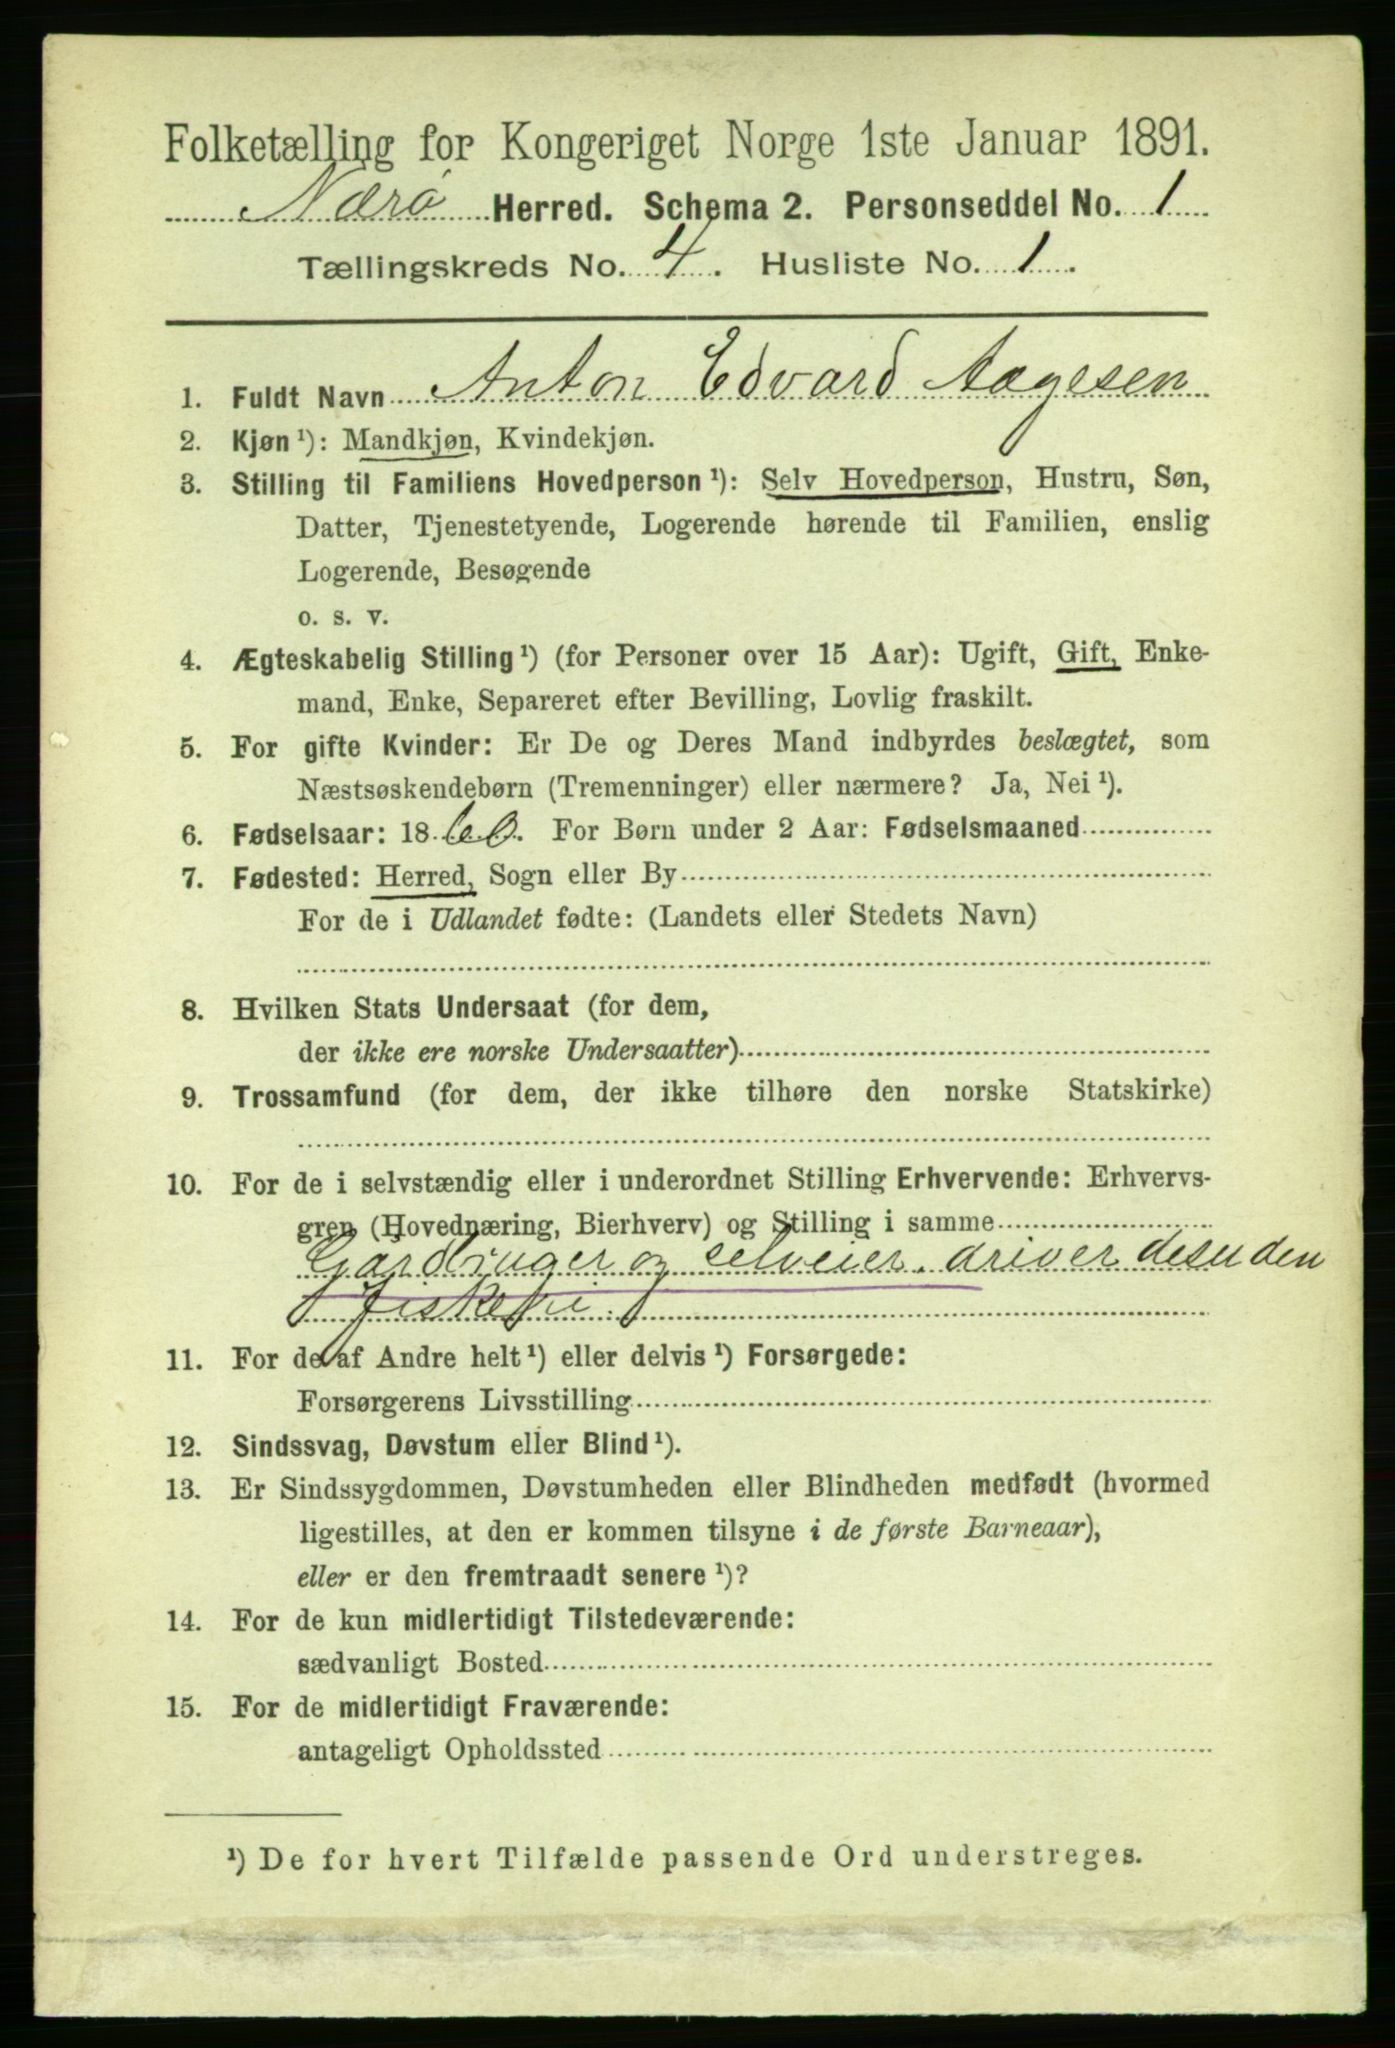 Folketælling for Kongeriget Norge 1ste Januar 1891.
Nærø Herred. Schema 2. Personseddel No. 1
Tællingskreds No. 4. Husliste No. 1.
1. Fuldt Navn Anton Edvard Aagesen
2. Kjøn ¹): Mandkjøn, Kvindekjøn.
3. Stilling til Familiens Hovedperson ¹): Selv Hovedperson, Hustru, Søn,
Datter, Tjenestetyende, Logerende hørende til Familien, enslig
Logerende, Besøgende
o. s. v.
4. Ægteskabelig Stilling ¹) (for Personer over 15 Aar): Ugift, Gift, Enke-
mand, Enke, Separeret efter Bevilling, Lovlig fraskilt.
5. For gifte Kvinder: Er De og Deres Mand indbyrdes beslægtet, som
Næstsøskendebørn (Tremenninger) eller nærmere? Ja, Nei ¹).
6. Fødselsaar: 1860. For Børn under 2 Aar: Fødselsmaaned
7. Fødested: Herred, Sogn eller By
For de i Udlandet fødte: (Landets eller Stedets Navn)
8. Hvilken Stats Undersaat (for dem,
der ikke ere norske Undersaatter)
9. Trossamfund (for dem, der ikke tilhøre den norske Statskirke)
10. For de i selvstændig eller i underordnet Stilling Erhvervende: Erhvervs-
gren (Hovednæring, Bierhverv) og Stilling i samme
Gardbruger og selveier. driver desuden
fiskeri
11. For de af Andre helt ¹) eller delvis ¹) Forsørgede:
Forsørgerens Livsstilling
12. Sindssvag, Døvstum eller Blind ¹).
13. Er Sindssygdommen, Døvstumheden eller Blindheden medfødt (hvormed
ligestilles, at den er kommen tilsyne i de første Barneaar),
eller er den fremtraadt senere ¹)?
14. For de kun midlertidigt Tilstedeværende:
sædvanligt Bosted
15. For de midlertidigt Fraværende:
antageligt Opholdssted
¹) De for hvert Tilfælde passende Ord understreges.